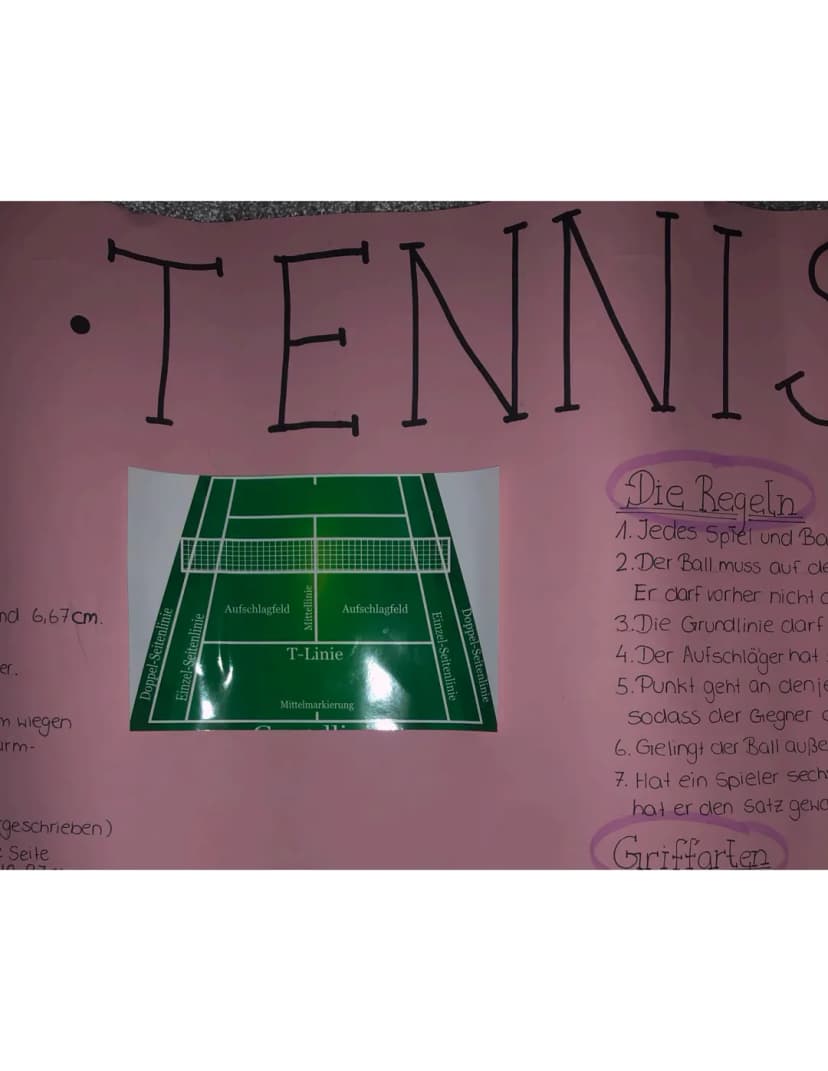 •TENNIS
nd 6,67cm.
er.
m wiegen
urm-
geschrieben)
Seite
Aufschlagfeld
Aufschlagfeld
Mittellinie
Doppel-Seitenlinie
Einzel-Seitenlinie
Einzel-Seitenlinie
Doppel-Seitenlinie
T-Linie
Mittelmarkierung
Die Regeln
1. Jedes Spiel und Ba
2. Der Ball muss auf de
Er darf vorher nicht
3. Die Grundlinie darf
4. Der Aufschläger hat
5. Punkt geht an denje
sodass der Gegner
6. Gelingt der Ball auße
7. Hat ein Spieler sech
hat er den Satz gewo
Griffarten